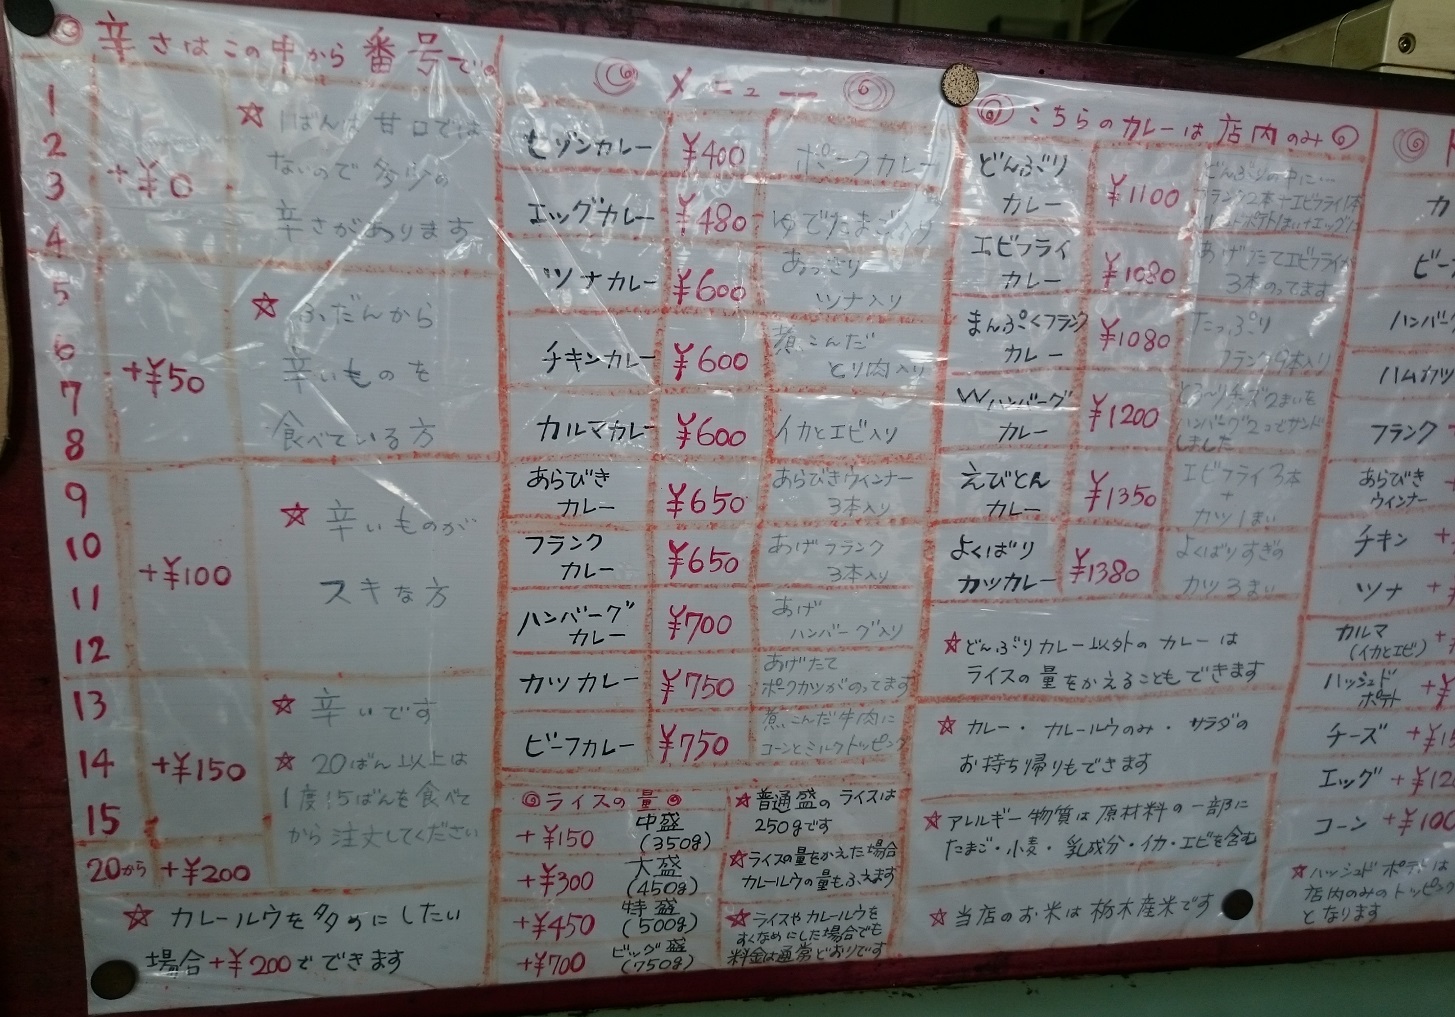 辛さはこの中から番号で。
1
2
3
4
+¥0
☆1ばんは甘口では
ないので多少の
辛さがあります
5
6
7
8
+¥50
☆ふだんから
辛いものを
食べている方
9
10
11
12
+¥100
☆辛いものが
スキな方
13
14
15
+¥150
☆辛いです
☆20ばん以上は
1度15ばんを食べて
から注文してください
20から +¥200
☆カレールウを多めにしたい
場合+¥200でできます
メニュー
セゾンカレー ¥400 ポークカレー
エッグカレー ¥480 ゆでたまご入り
ツナカレー ¥600 あっさり
ツナ入り
チキンカレー ¥600 煮こんだ
とり肉入り
カルマカレー ¥600 イカとエビ入り
あらびき
カレー ¥650 あらびきウインナー
3本入り
フランク
カレー ¥650 あげフランク
3本入り
ハンバーグ
カレー ¥700 あげ
ハンバーグ入り
カツカレー ¥750 あげたて
ポークカツがのってます
ビーフカレー ¥750 煮こんだ牛肉に
コーンとミルクトッピング
ライスの量
+¥150 中盛
(350g)
+¥300 大盛
(450g)
+¥450 特盛
(500g)
+¥700 ビッグ盛
(750g)
☆普通盛のライスは
250gです
☆ライスの量をかえた場合
カレールウの量もふえます
☆ライスやカレールウを
すくなめにした場合でも
料金は通常どおりです
こちらのカレーは店内のみ
どんぶり
カレー ¥1100 どんぶりの中に…
フランク2本+エビフライ1本
エビフライ
カレー ¥1080 あげたてエビフライが
3本のってます
まんぷくフランク
カレー ¥1080 たっぷり
フランク9本入り
Wハンバーグ
カレー ¥1200 とろ〜りチーズ2まいを
ハンバーグ2つでサンド
しました
えびとん
カレー ¥1350 エビフライ3本
+
カツ1まい
よくばり
カツカレー ¥1380 よくばりすぎの
カツ3まい
☆どんぶりカレー以外のカレーは
ライスの量をかえることもできます
☆カレー・カレールウのみ・サラダの
お持ち帰りもできます
☆アレルギー物質は原材料の一部に
たまご・小麦・乳成分・イカ・エビを含む
☆当店のお米は栃木産米です
カ
ビー
ハンバーグ
ハムカツ
フランク
あらびき
ウィンナー
チキン +
ツナ +
カルマ
(イカとエビ) +
ハッシュド
ポテト +¥
チーズ +¥15
エッグ +¥12
コーン +¥100
☆ハッシュドポテトは
店内のみのトッピング
となります